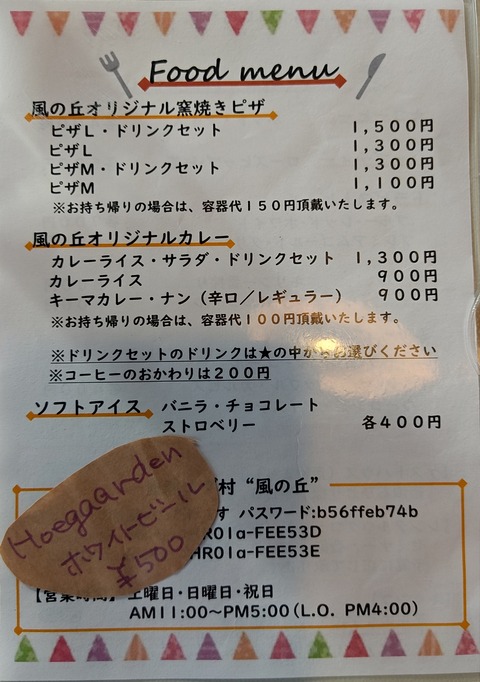 Food menu
風の丘オリジナル窯焼きピザ
ピザL・ドリンクセット 1,500円
ピザL 1,300円
ピザM・ドリンクセット 1,300円
ピザM 1,100円
※お持ち帰りの場合は、容器代150円頂戴いたします。
風の丘オリジナルカレー
カレーライス・サラダ・ドリンクセット 1,300円
カレーライス 900円
キーマカレー・ナン（辛口／レギュラー） 900円
※お持ち帰りの場合は、容器代100円頂戴いたします。
※ドリンクセットのドリンクは★の中からお選びください
※コーヒーのおかわりは200円
ソフトアイス バニラ・チョコレート
ストロベリー 各400円
村 “風の丘”
す パスワード:b56ffeb74b
HR01a-FEE53D
HR01a-FEE53E
Hoegaarden
ホワイトビール
¥500
【営業時間】 土曜日・日曜日・祝日
AM11:00～PM5:00(L.O. PM4:00)